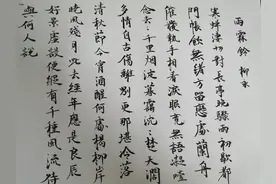 雨霖鈴 柳永
寒蟬淒切對長亭晚驟雨初歇都
門帳飲無緒方留戀處蘭舟
催發執手相看淚眼竟無語凝噎
念去々千里烟波暮靄沉々楚天闊
多情自古傷離別更那堪冷落
清秋節今宵酒醒何處楊柳岸
曉風殘月此去經年應是良辰
好景虛設便縱有千種風流待
與何人說